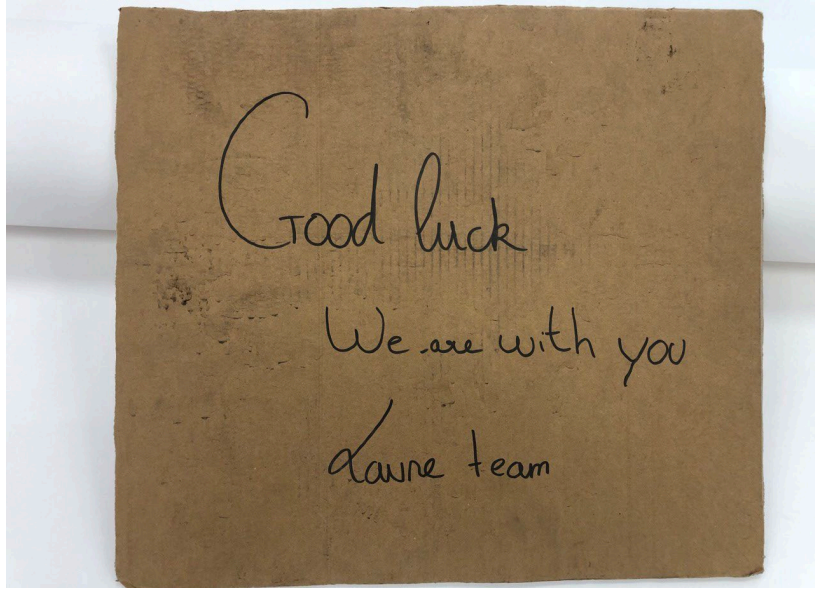 Good luck
We are with you
Laure team